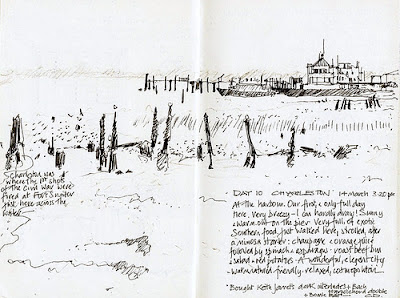 Charleston was
where the 1st shots
of the Civil War were
fired at Fort Sumter
just here across the
water
DAY 10 CHARLESTON 14 March 3.20 pm
At the harbour. Our first & only full day
here. Very breezy - I can hardly draw! Sunny
& warm out on the pier. Very full of exotic
Southern food, just walked here, strolled, after
a mimosa starter: champagne & orange juice
followed by spinach & asparagus, roast beef bun
salad & red potatoes. A wonderful, elegant city
warm, natured, friendly, relaxed, cosmopolitan.
Bought Keith Jarrett's & Bach
harpsichord double
+ Bonnie